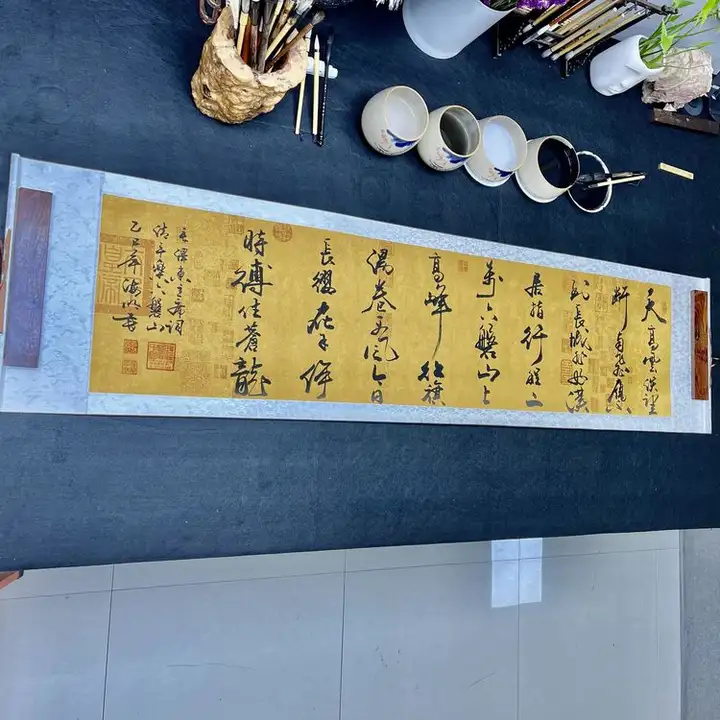 天高雲淡望
斷南飛雁不
到長城非好漢
屈指行程二
萬六盤山上
高峰紅旗
漫卷西風今日
長纓在手何
時縛住蒼龍
毛澤東主席詞
清平樂六盤山
乙巳年海明書